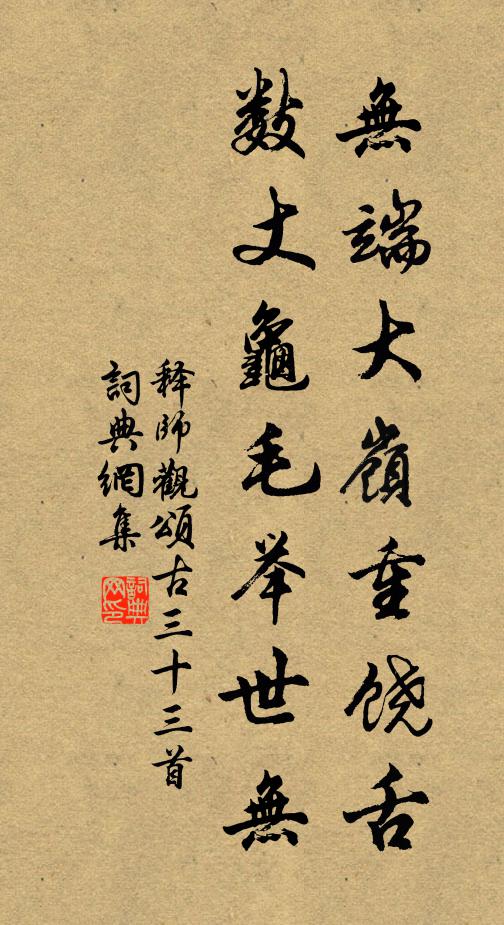 無端大嶺重饶舌
數丈龜毛举世無
释師觀頌古三十三首
詞典網集
詞典网印